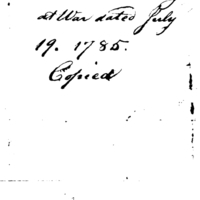 at War dated July
19. 1785.
Copied